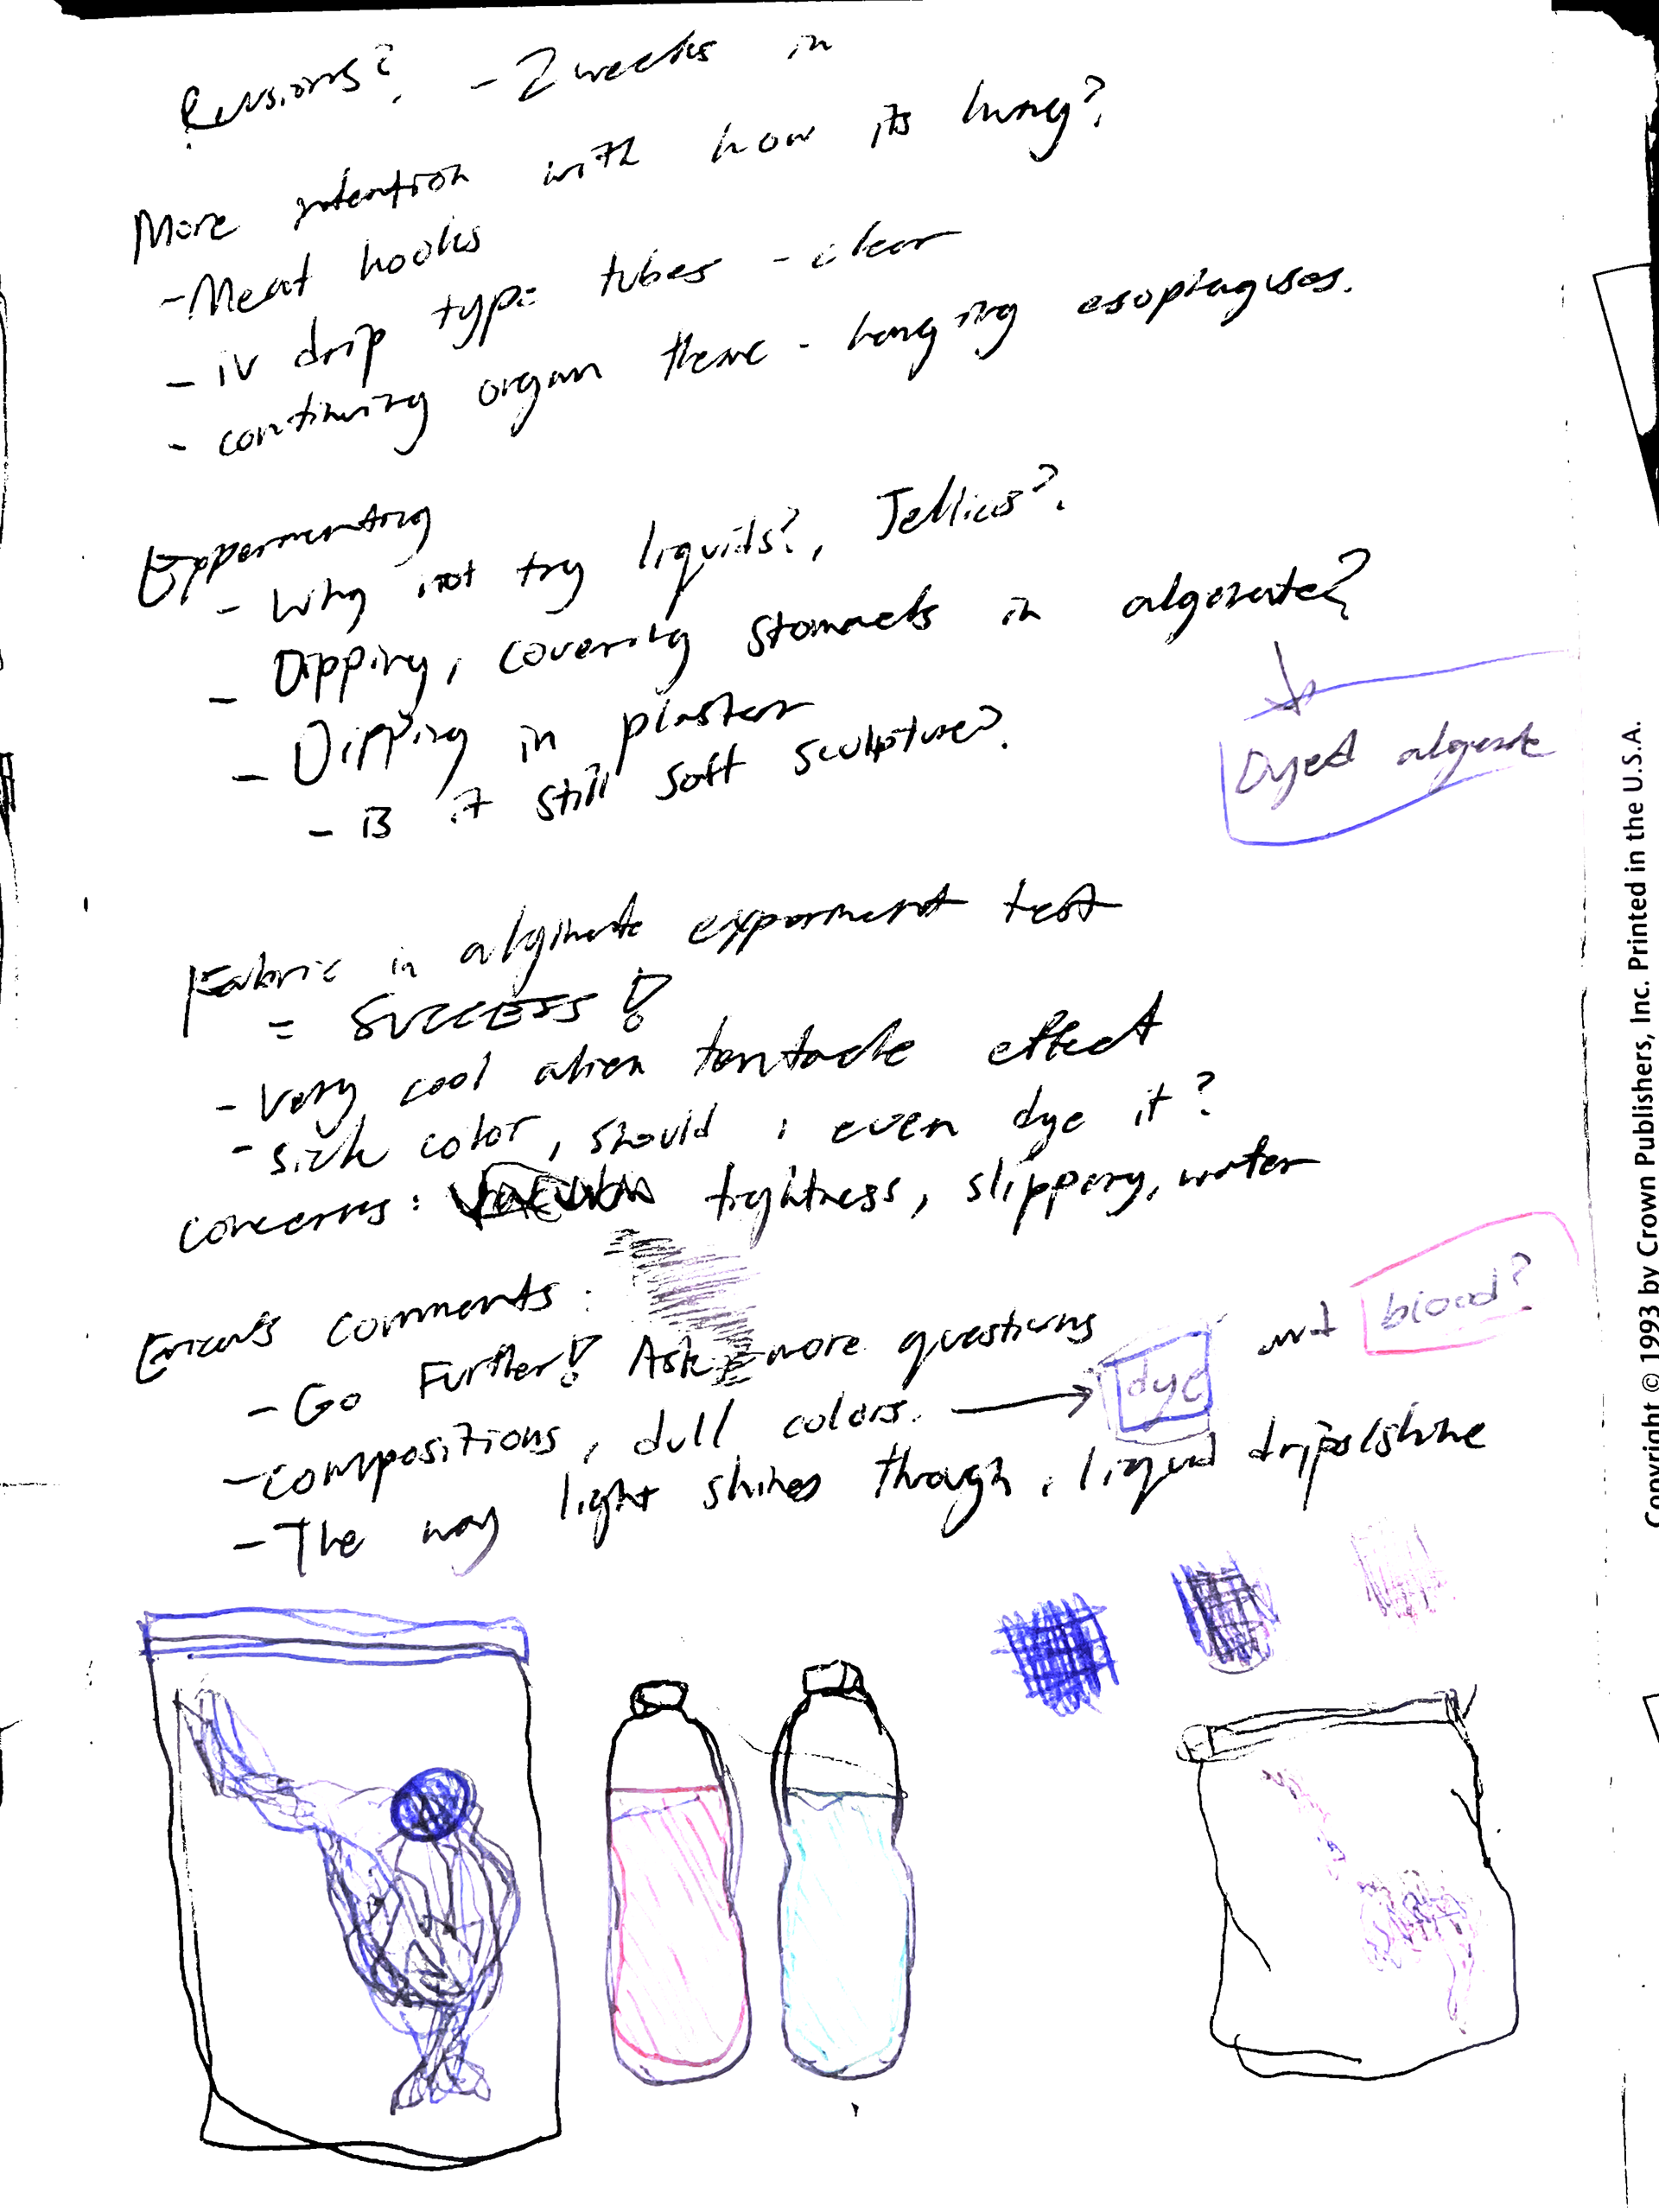 Revisions? - 2 weeks in
More intention with how its hung?
- Meat hooks
- iv drip type tubes - clear
- continuing organ theme - hanging esophaguses.
Expermenting
- Why not try liquids?, Jellies?
- Dipping, covering stomachs in algenate?
Dyed algenate
- Dipping in plaster
- is it still soft sculpture?
Fabric in alginate experiment test
= SUCCESS!
- very cool alien tentacle effect
- sick color, should i even dye it?
concerns: tightness, slippery, water
comments:
- Go Further! Ask more questions
- compositions, dull colors. → dye not blood?
- The way light shines through, liquid drips/shine
Copyright © 1993 by Crown Publishers, Inc. Printed in the U.S.A.